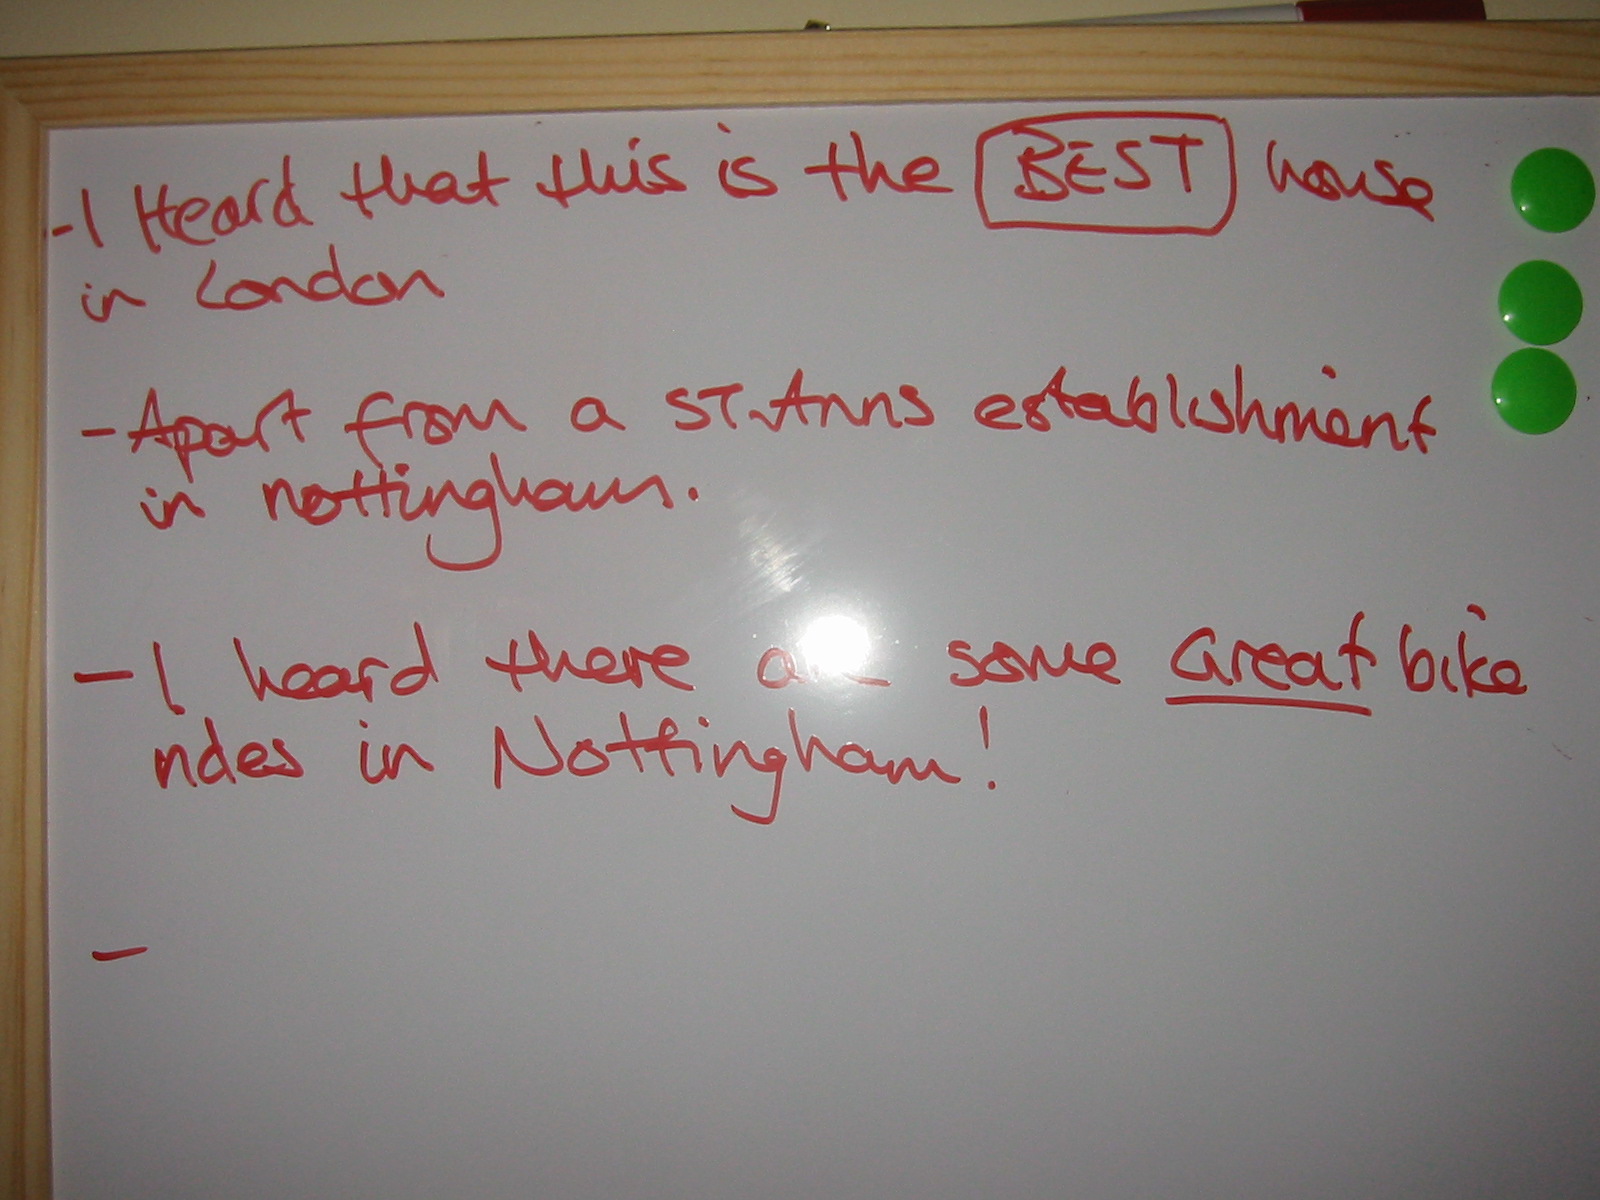 - I Heard that this is the BEST house
in London
- Apart from a ST.Anns establishment
in nottingham.
- I heard there some Great bike
rides in Nottingham!
-